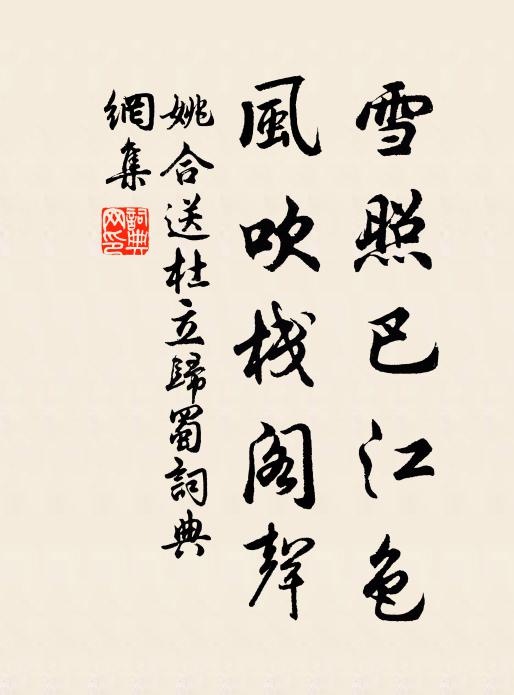 雪照巴江色
風吹栈阁聲
姚合送杜立歸蜀詞典
網集
詞典
网印